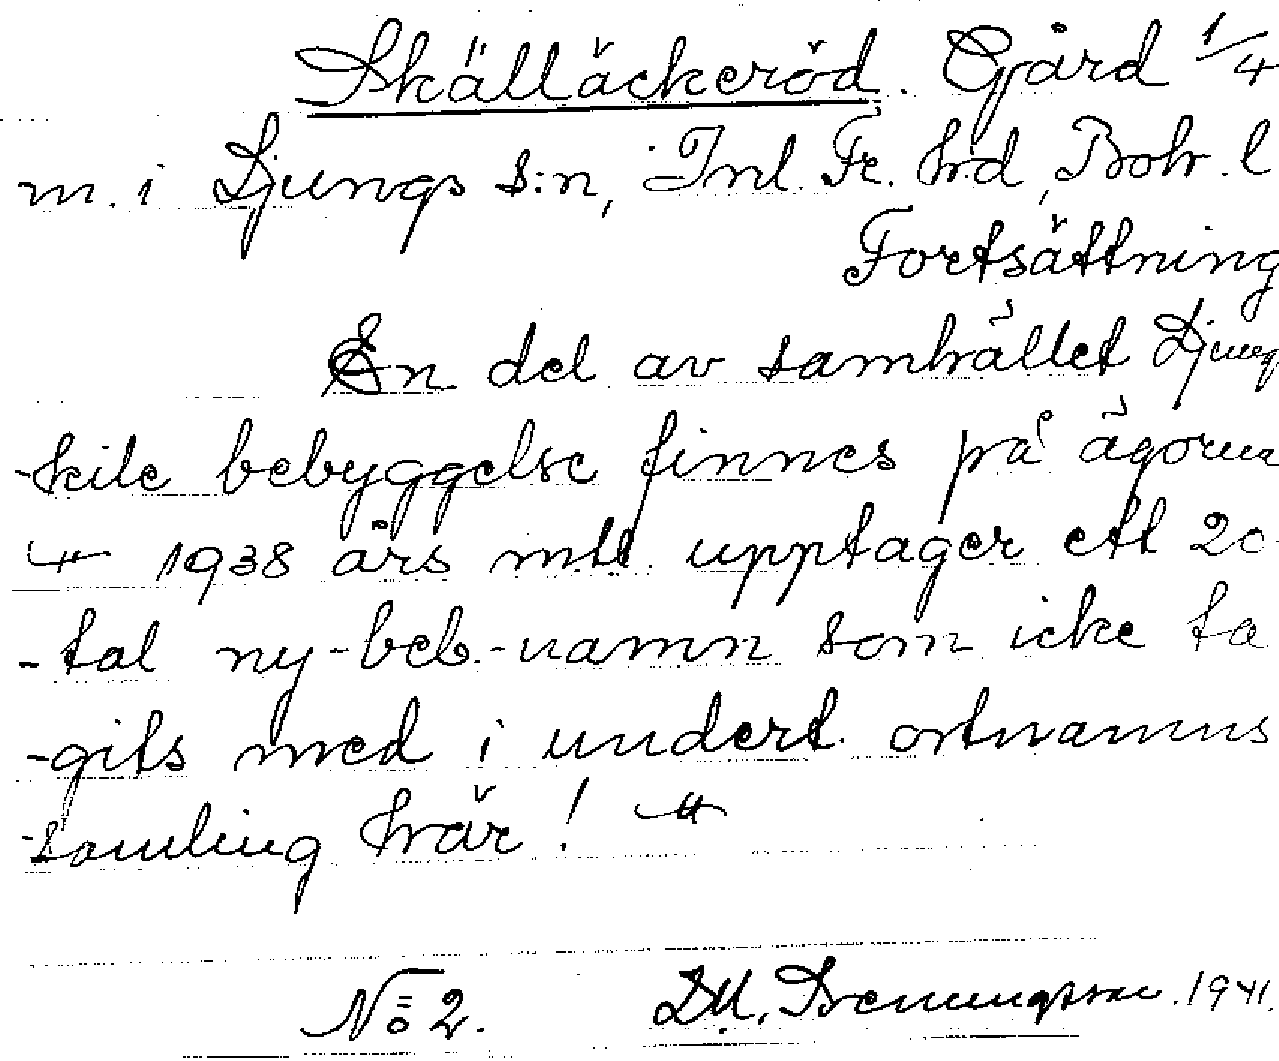 Skälläckeröd. Gård 1/4
m. i Ljungs s:n, Inl. Fr. hrd, Boh. l
Fortsättning
En del av samhället Ljung
-skile bebyggelse finnes på ägorna
1938 års mtl upptager ett 20-
-tal ny-beb.-namn som icke ta
-gits med i undert. ortnamns
-samling här!
No 2. 1941.